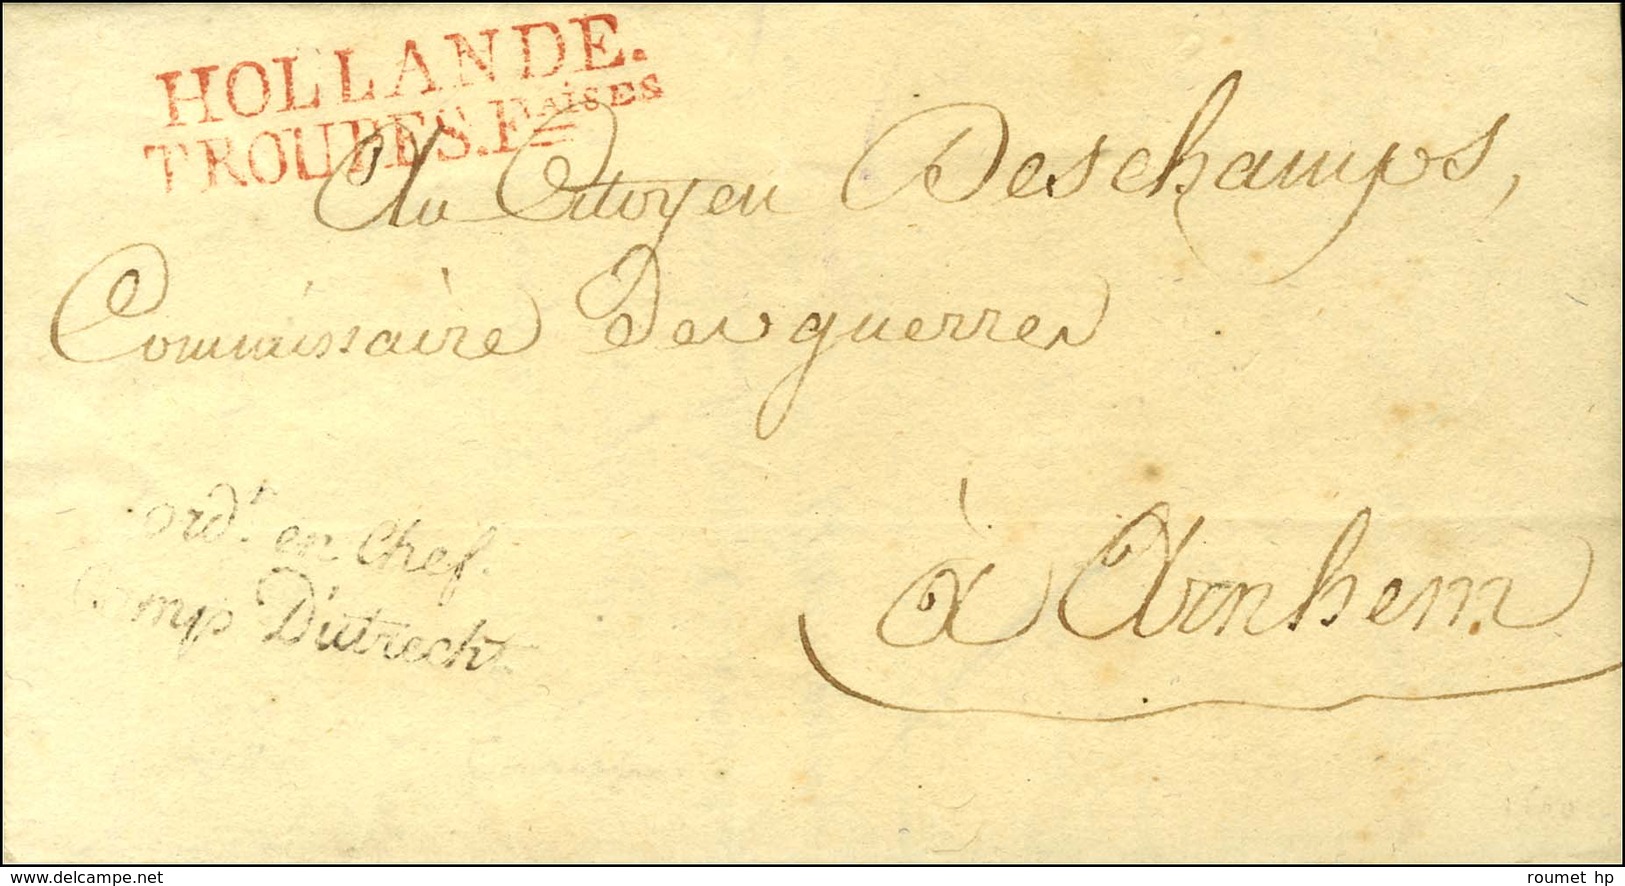 HOLLANDE.
TROUPES.Fçaises
Au Citoyen Deschamps,
Commissaire Des guerres
à Arnhem
ord.r en Chef.
Camp D'utrecht
www.delcampe.net
roumet hp